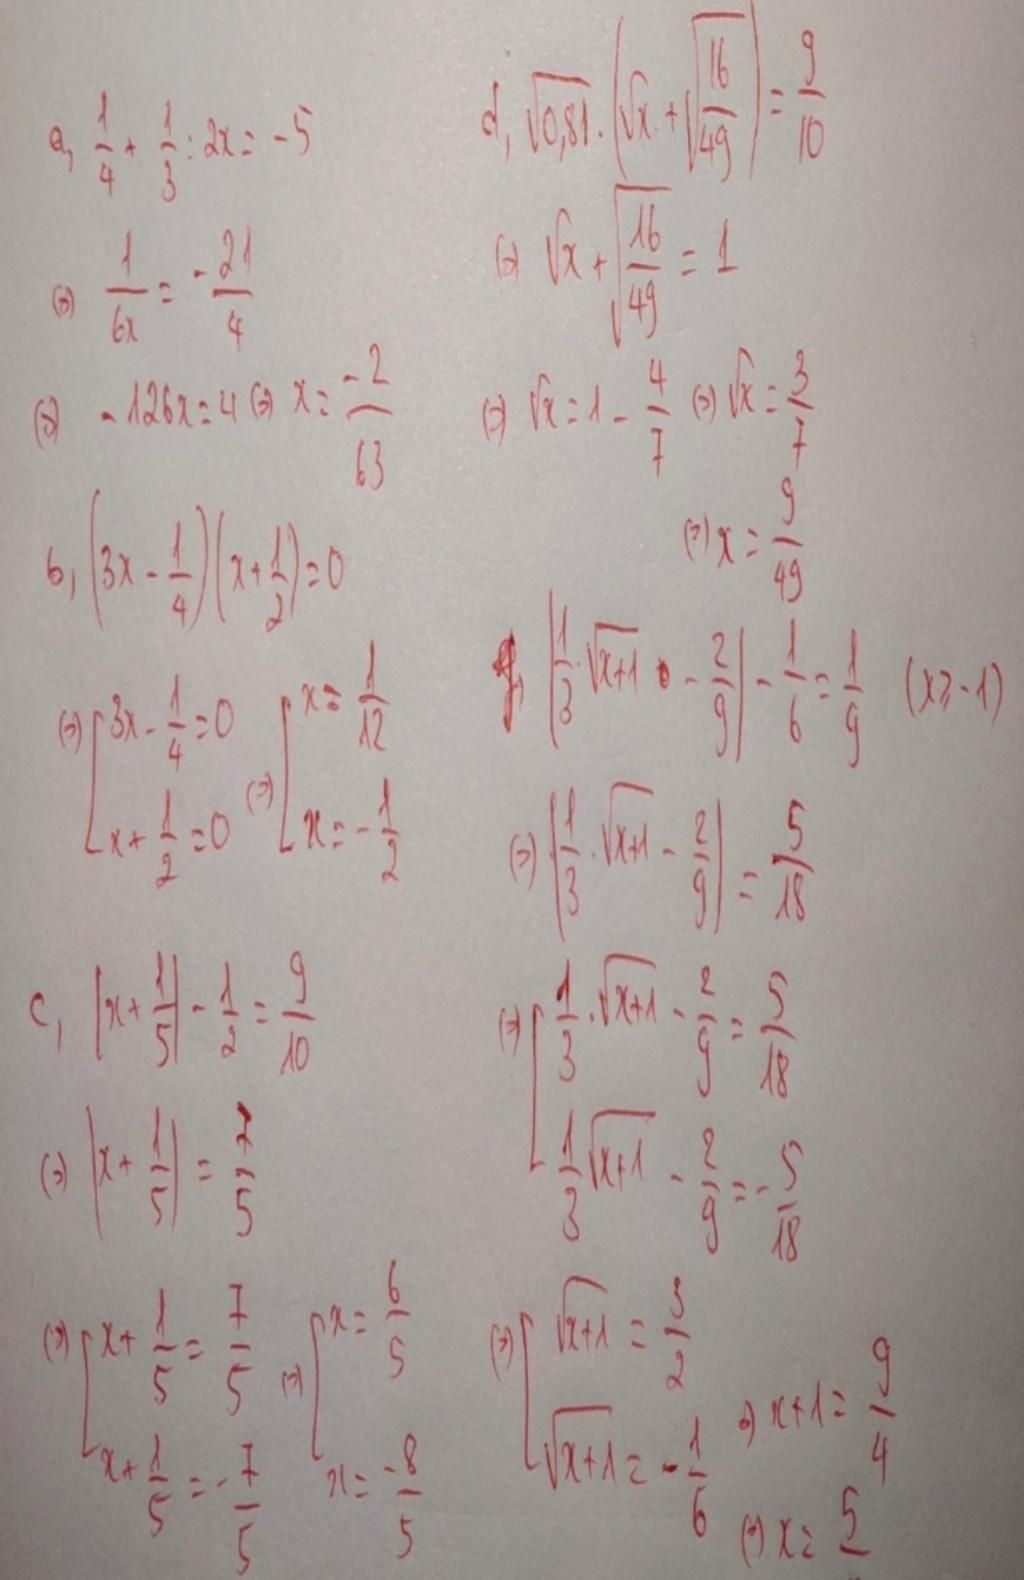 a, 1/4 + 1/3 : 2x = -5
(=) 1/6x = -21/4
(=) -126x = 4 (=) x = -2/63
b, (3x - 1/4)(x + 1/2) = 0
(=) [3x - 1/4 = 0 (=) [x = 1/12
x + 1/2 = 0 x = -1/2
c, |x + 1/5| - 1/2 = 9/10
(=) |x + 1/5| = 7/5
(=) [x + 1/5 = 7/5 (=) [x = 6/5
x + 1/5 = -7/5 x = -8/5
d, √0,81 . (√x + √16/49) = 9/10
(=) √x + √16/49 = 1
(=) √x = 1 - 4/7 (=) √x = 3/7
(=) x = 9/49
g, |1/3 . √x+1 - 2/9| - 1/6 = 1/9 (x ≥ -1)
(=) |1/3 . √x+1 - 2/9| = 5/18
(=) [1/3 . √x+1 - 2/9 = 5/18
1/3 √x+1 - 2/9 = -5/18
(=) [√x+1 = 3/2
√x+1 = -1/6 => x+1 = 9/4
(=) x = 5